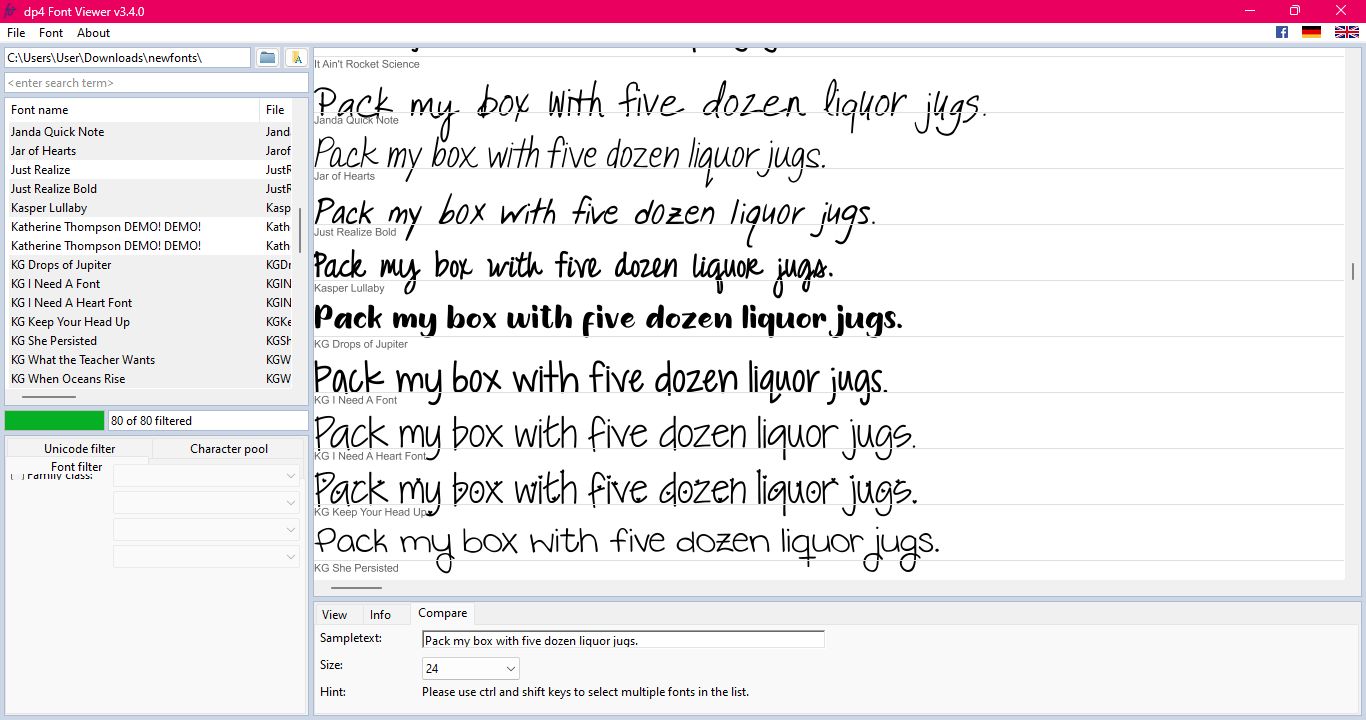 dp4 Font Viewer v3.4.0
File Font About
C:\Users\User\Downloads\newfonts\
<enter search term>
Font name File
Janda Quick Note Janda
Jar of Hearts Jarof
Just Realize JustR
Just Realize Bold JustR
Kasper Lullaby Kasp
Katherine Thompson DEMO! DEMO! Kath
Katherine Thompson DEMO! DEMO! Kath
KG Drops of Jupiter KGDr
KG I Need A Font KGIN
KG I Need A Heart Font KGIN
KG Keep Your Head Up KGKe
KG She Persisted KGSh
KG What the Teacher Wants KGW
KG When Oceans Rise KGW
80 of 80 filtered
Unicode filter Character pool
Font filter
Family class:
It Ain't Rocket Science
Pack my box with five dozen liquor jugs.
Janda Quick Note
Pack my box with five dozen liquor jugs.
Jar of Hearts
Pack my box with five dozen liquor jugs.
Just Realize Bold
Pack my box with five dozen liquor jugs.
Kasper Lullaby
Pack my box with five dozen liquor jugs.
KG Drops of Jupiter
Pack my box with five dozen liquor jugs.
KG I Need A Font
Pack my box with five dozen liquor jugs.
KG I Need A Heart Font
Pack my box with five dozen liquor jugs.
KG Keep Your Head Up
Pack my box with five dozen liquor jugs.
KG She Persisted
View Info Compare
Sampletext: Pack my box with five dozen liquor jugs.
Size: 24
Hint: Please use ctrl and shift keys to select multiple fonts in the list.